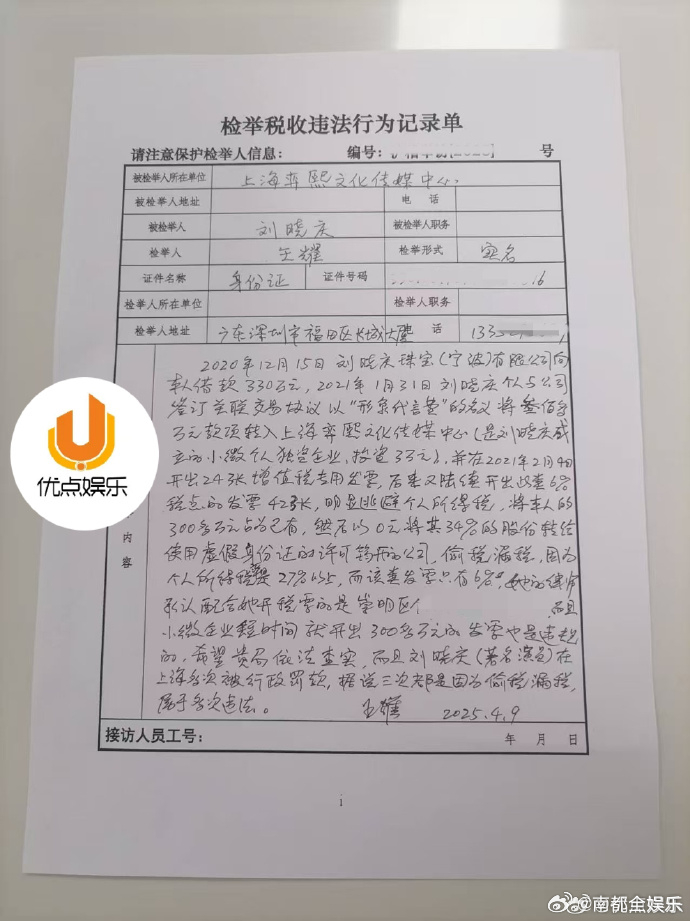 检举税收违法行为记录单
请注意保护检举人信息： 编号： 号
被检举人所在单位 上海弈熙文化传媒中心
被检举人地址 电 话
被检举人 刘晓庆 被检举人职务
检举人 王耀 检举形式 实名
证件名称 身份证 证件号码 16
检举人所在单位 检举人职务
检举人地址 广东深圳市福田区长城大厦 话 133
2020年12月15日刘晓庆珠宝(宁波)有限公司向
本人借款330万元,2021年1月31日刘晓庆个人与公司
签订关联交易协议以"形象代言费"的名义将叁佰多
万元款项转入上海弈熙文化传媒中心(是刘晓庆成
立的小微个人独资企业,投资3万元),并在2021年2月4日
开出24张增值税专用发票,后来又陆续开出
税点的发票42张,明显逃避个人所得税,将本人的
300多万元占为己有,然后以0元将其34%的股份转给
使用虚假身份证的许可筠开的公司,偷税漏税,因为
个人所得税是27%以上,而该查发票只有6%,她的律师
承认配合她开税票的是崇明区 而且
小微企业短时间就开出300多万元的发票也是违规
的,希望贵局依法查实,而且刘晓庆(著名演员)在
上海多次被行政罚款,据说三次都是因为偷税漏税,
属于多次违法。 王耀 2025.4.9
内
容
接访人员工号： 年 月 日
1
优点娱乐
@南都全娱乐